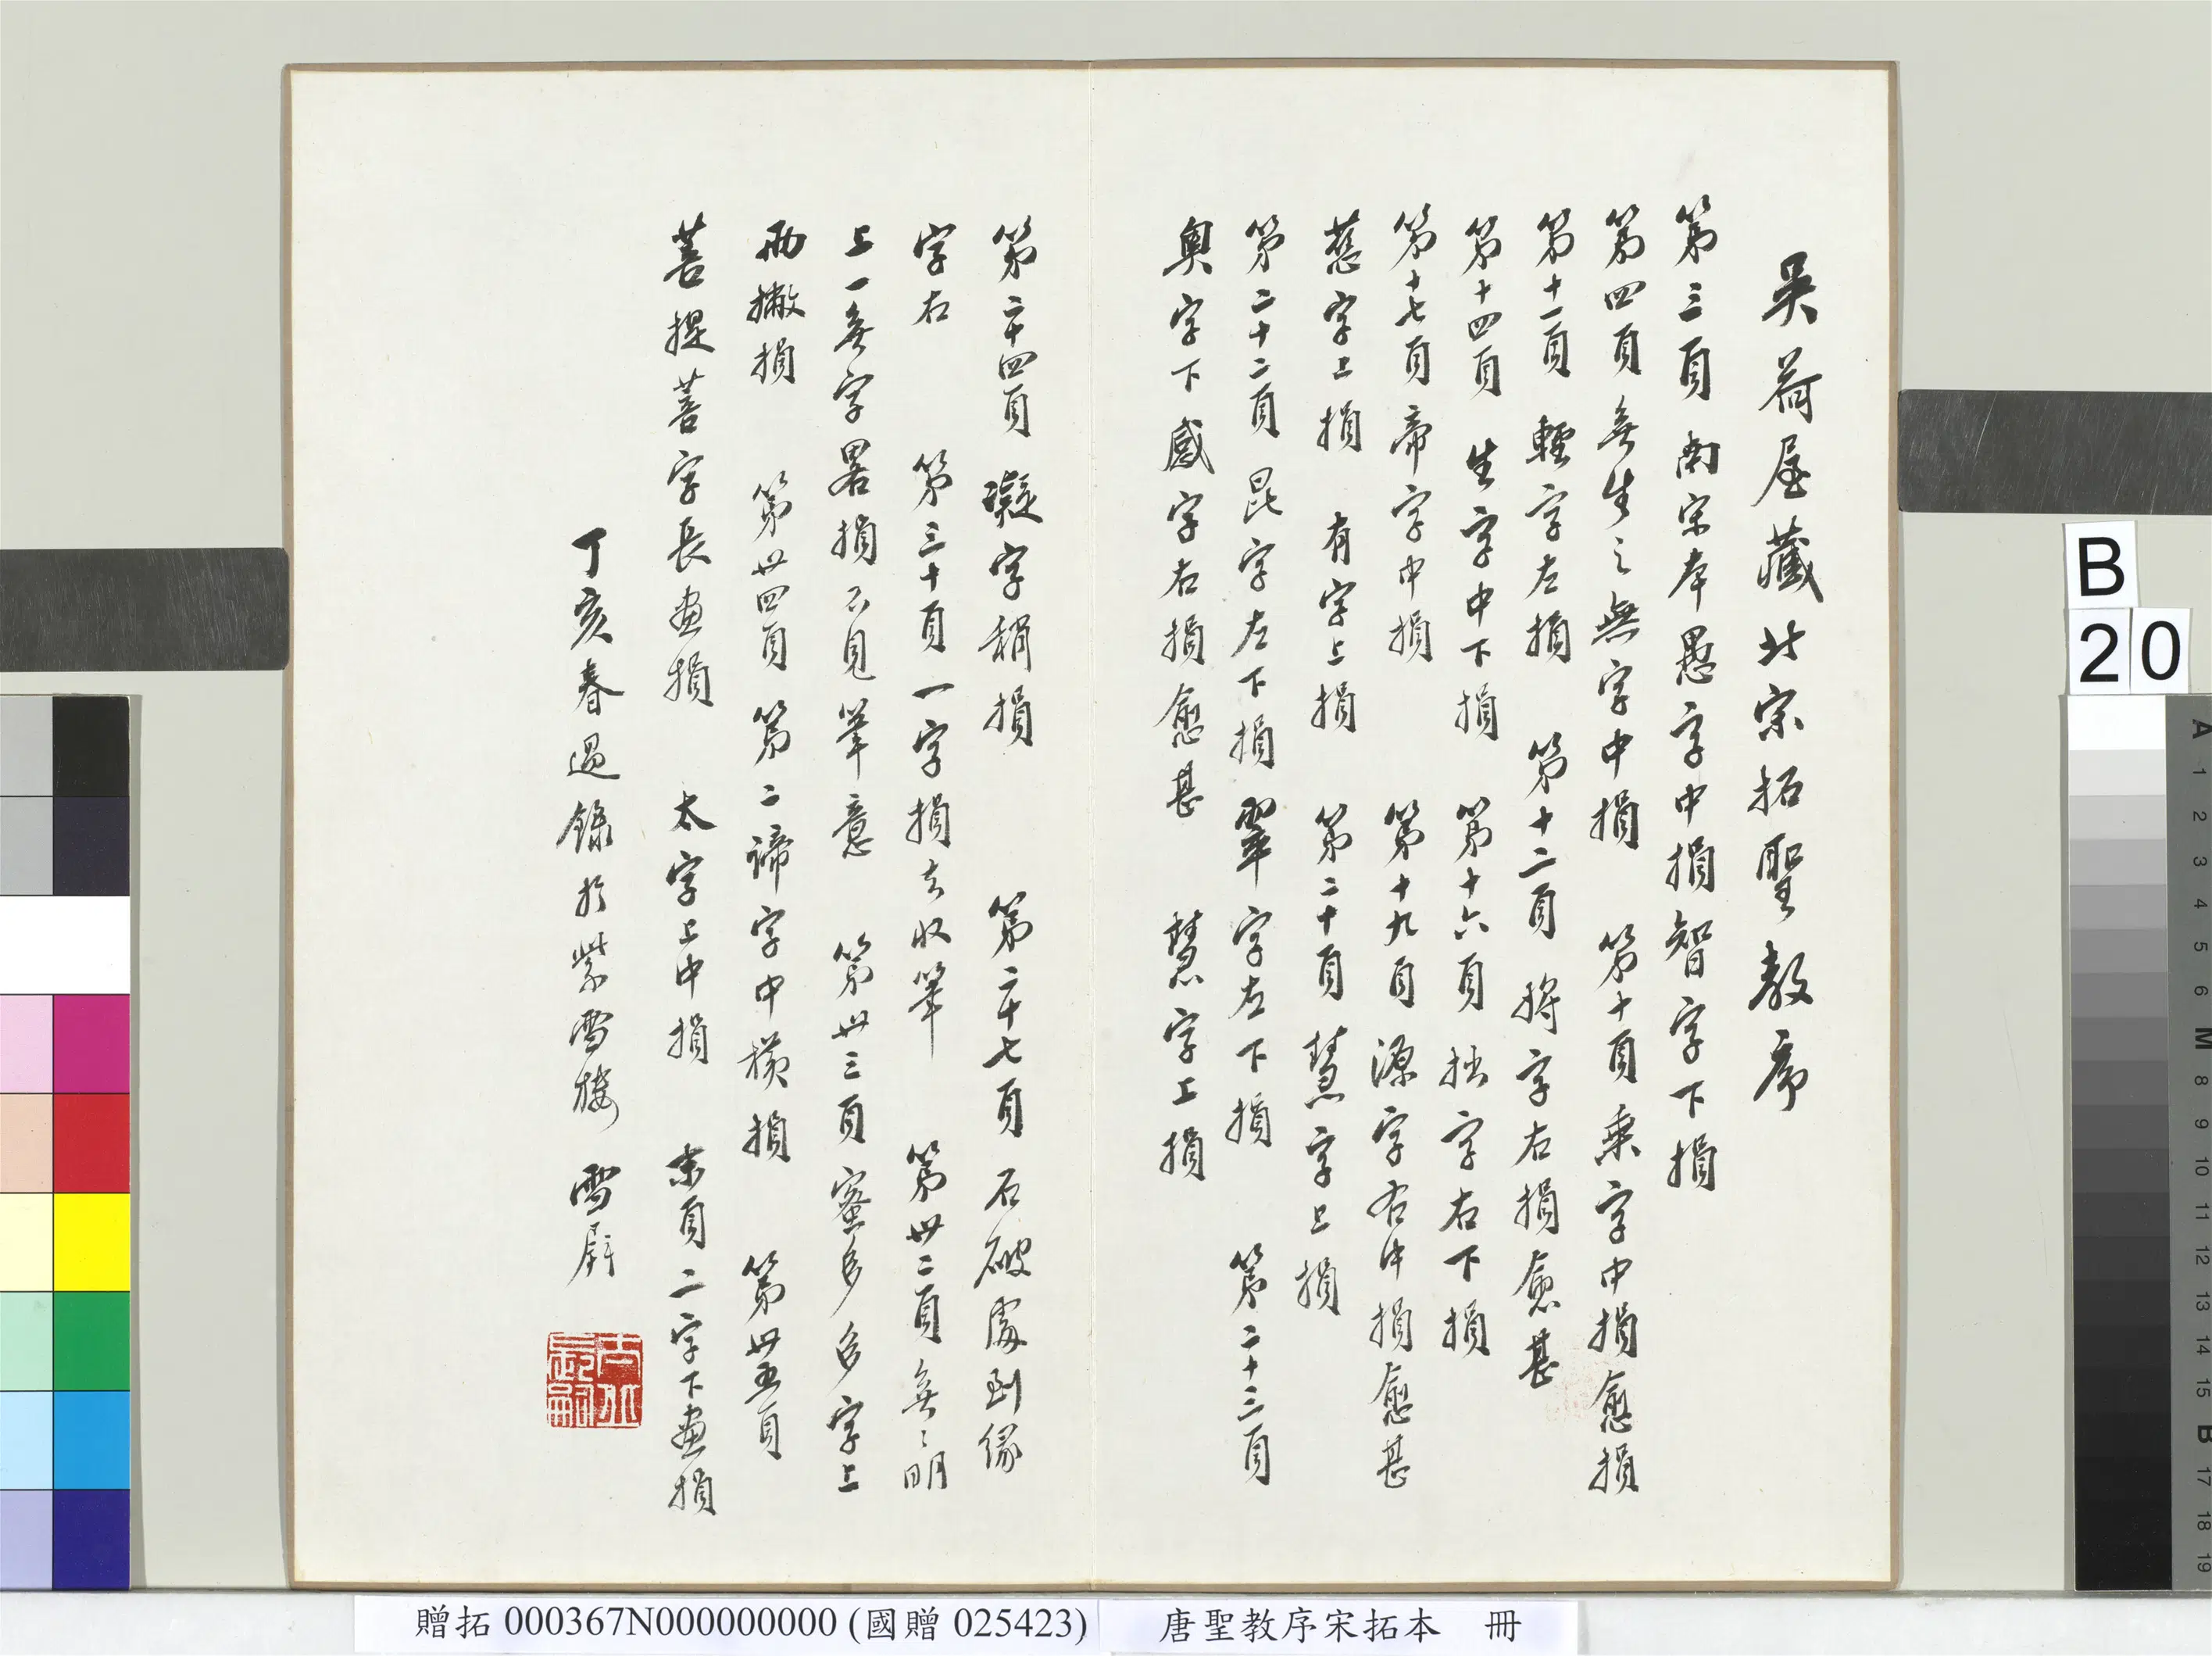 吳荷屋藏北宋拓聖教序
第三頁 南宋本愚字中損 智字下損
第四頁 無生之無字中損 第十頁 乘字中損愈損
第十一頁 輕字左損 第十二頁 將字右損愈甚
第十四頁 生字中下損 第十六頁 拙字右下損
第十七頁 帝字中損 第十九頁 源字右中損愈甚
慈字上損 有字上損 第二十頁 慧字上損
第二十二頁 昆字左下損 翚字左下損 第二十三頁
奧字下感字右損愈甚 慧字上損
第二十四頁 礙字稍損 第二十七頁 石破處到緣
字右 第三十頁 一字損去收筆 第卅二頁 無〻明
上一無字畧損不見筆意 第卅三頁 蜜多多字上
兩撇損 第卅四頁 第二諦字中橫損 第卅五頁
菩提菩字長畫損 太字上中損 末頁二字下畫損
丁亥春過錄於紫雪樓 雪屏
B
20
A 1 2 3 4 5 6 M 8 9 10 11 12 13 14 15 B 17 18 19
贈拓 000367N000000000 (國贈 025423) 唐聖教序宋拓本 冊